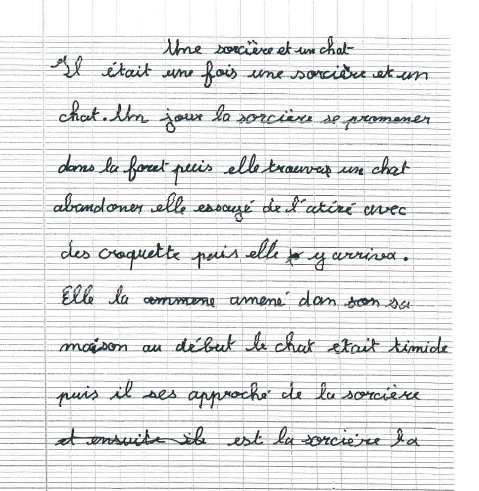 Une sorcière et un chat
Il était une fois une sorcière et un
chat. Un jour la sorcière se promener
dans la foret puis elle trouvas un chat
abandoner elle essayé de l'atiré avec
des croquette puis elle y arriva.
Elle la ammene amené dan son sa
maison au début le chat etait timide
puis il ses approché de la sorcière
et ensuite il est la sorcière la